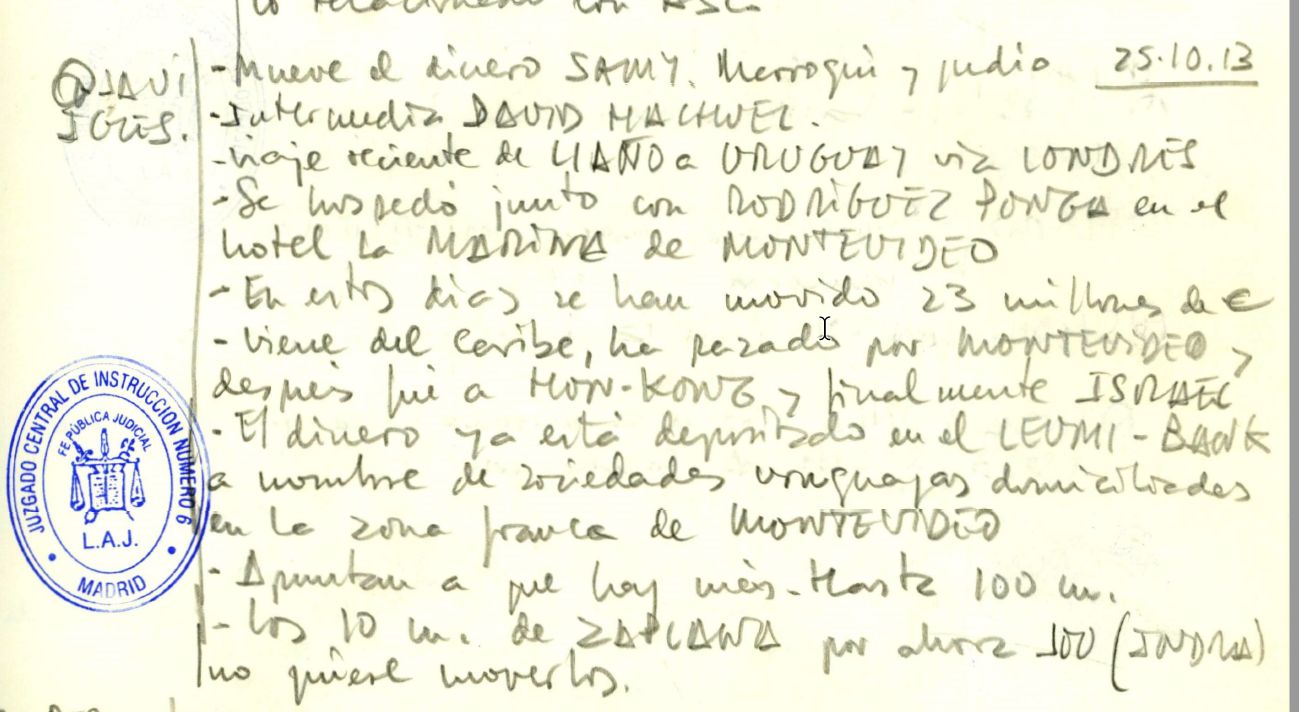 lo relacionado con
- Mueve el dinero SAMY. Marroquí y judío 25.10.13
JAVI
IGLES.
- Intermedia DAVID MACHUEL.
- Viaje reciente de LIAÑO a URUGUAY vía LONDRES
- Se hospedó junto con RODRÍGUEZ PONGA en el
hotel La MARINA de MONTEVIDEO
- En estos días se han movido 23 millones de €
- Viene del Caribe, ha pasado por MONTEVIDEO,
después fué a HON-KONG y finalmente ISRAEL
- El dinero ya está depositado en el LEUMI-BANK
a nombre de sociedades uruguayas domiciliadas
en la zona franca de MONTEVIDEO
- Apuntan a que hay más. Hasta 100 m.
- Los 10 m. de ZAPLANA por ahora JOO (INDRA)
no quiere moverlos.
JUZGADO CENTRAL DE INSTRUCCION NUMERO 6
FE PÚBLICA JUDICIAL
L.A.J.
MADRID